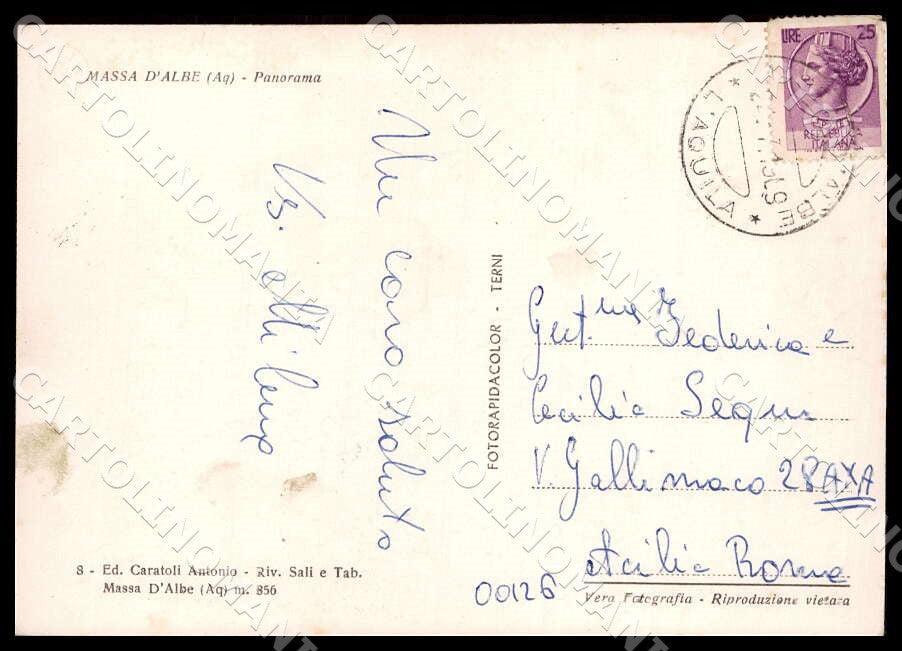 MASSA D'ALBE (Aq) - Panorama
Un caro saluto
FOTORAPIDACOLOR - TERNI
LIRE 25
REPUBBLICA
ITALIANA
L'AQUILA
ALBE
Gent.ma Federica e
Cecilia
V. Gallimaco 28 AXA
Acilia Roma
8 - Ed. Caratoli Antonio - Riv. Sali e Tab.
Massa D'Albe (Aq) m. 856
00126
Vera Fotografia - Riproduzione vietata
CARTOLINOMANIA